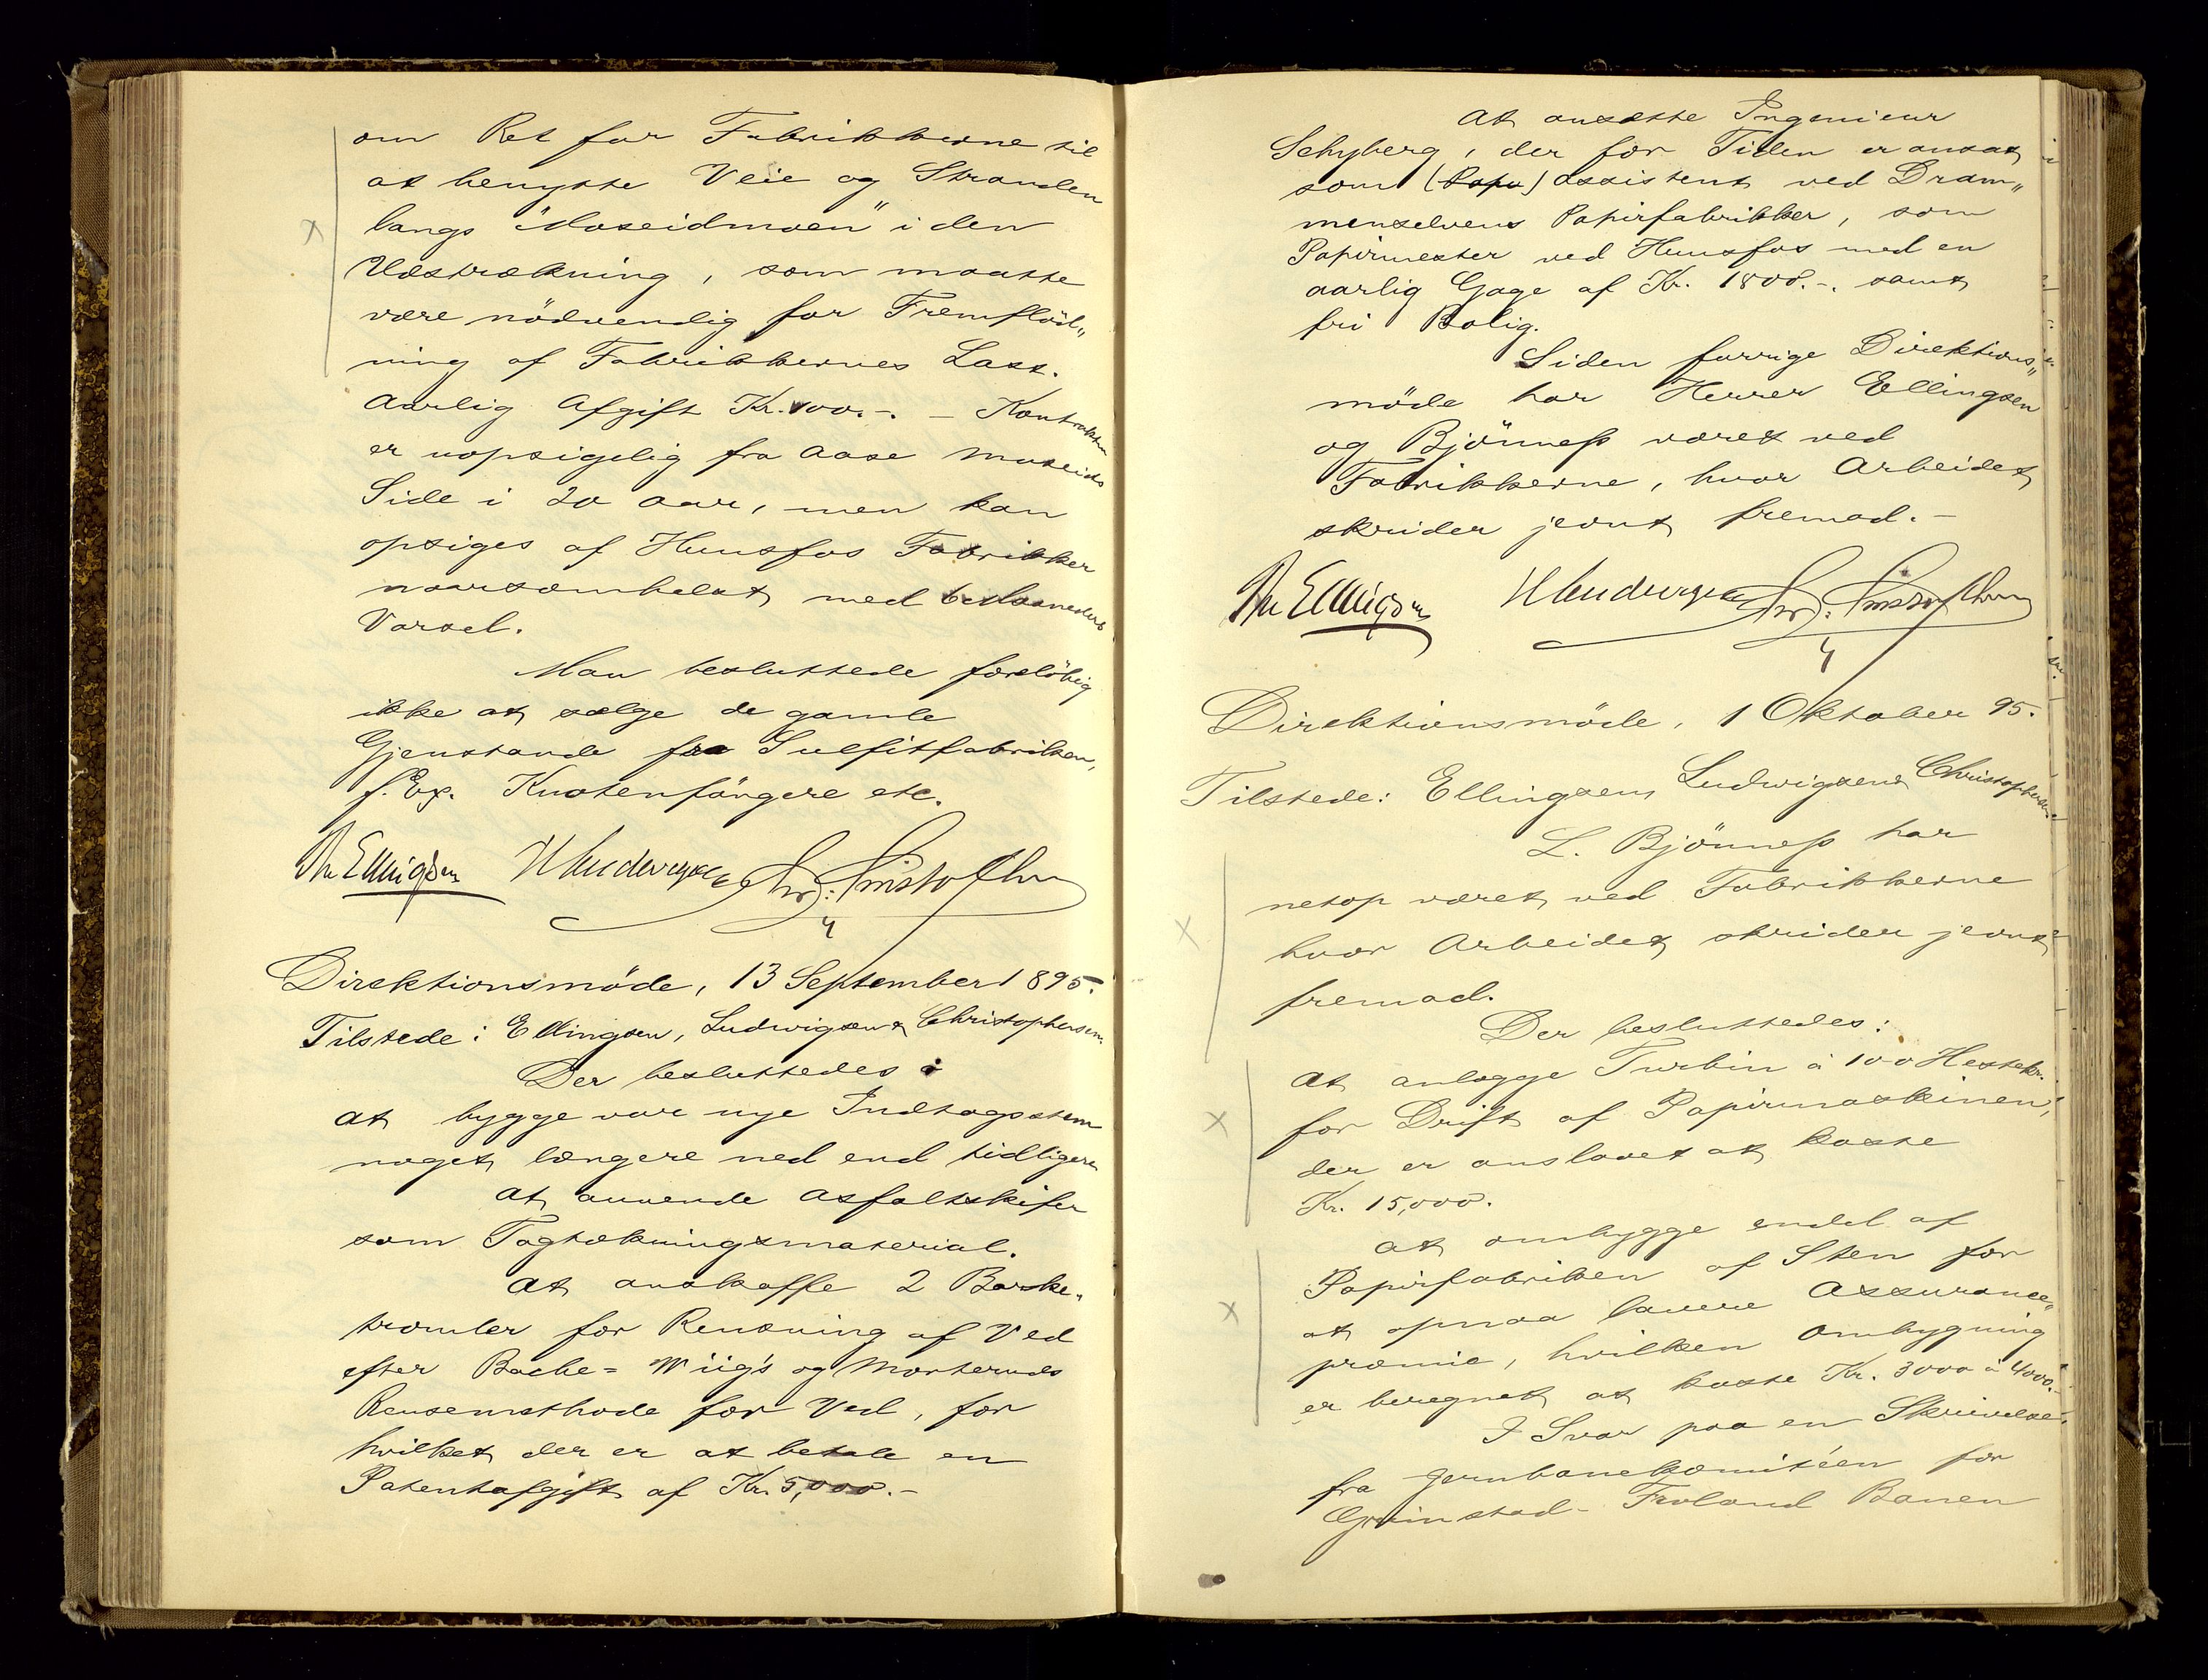 om Ret for Fabrikkerne til
at benytte Veie og Stranden
langs "Moseidmoen" i den
Udstrækning, som maatte
være nödvendig for Fremflöd„
ning af Fabrikkernes Last.
Aarlig Afgift Kr. 100.-. - Kontrakten
er uopsigelig fra Aase Moseids
Side i 20 Aar, men kan
opsiges af Hunsfos Fabrikker
naarsomhelst med 6 Maaneders
Varsel.
Man besluttede foreløbig
ikke at sælge de gamle
Gjenstande fra Sulfitfabriken,
f. Ex. Knotenfängere etc.
Th Ellingsen H Ludwigsen Chr. Christophersen
Direktionsmöde, 13 September 1895.
Tilstede: Ellingsen, Ludwigsen & Christophersen.
Der besluttedes:
At bygge vor nye Indtagsstem
noget længere ned end tidligere
At anvende Asfaltskifer
som Tagtækningsmaterial.
At anskaffe 2 Barke„
tromler for Rensning af Ved
efter Bache=Wiig's og Morteruds
Rensemethode for Ved, for
hvilket der er at betale en
Patentafgift af Kr. 5,000.-
At ansætte Ingenieur
Schyberg, der for Tiden er ansat
som (Papi) Assistent ved Dram„
menselvens Papirfabrikker, som
Papirmester ved Hunsfos med en
aarlig Gage af Kr. 1800.-. samt
fri Bolig.
Siden forrige Direktions„
möde har Herrer Ellingsen
og Bjönness været ved
Fabrikkerne, hvor Arbeidet
skrider jevnt fremad.-
Th Ellingsen H Ludwigsen Chr. Christophersen
Direktionsmöde, 1 Oktober 95.
Tilstede: Ellingsen, Ludwigsen & Christophersen.
L. Bjönness har
netop været ved Fabrikkerne
hvor Arbeidet skrider jevnt
fremad.
Der besluttedes:
At anlægge Turbin à 100 Hestekr.
for Drift af Papirmaskinen,
der er anslaaet at koste
Kr. 15,000.
At ombygge endel af
Papirfabriken af Sten for
at opnaa lavere Assurance„
præmie, hvilken Ombygning
er beregnet at koste Kr. 3000 à 4000.-
I Svar paa en Skrivelse
fra Jernbanekomitéen for
Grimstad-Froland Banen